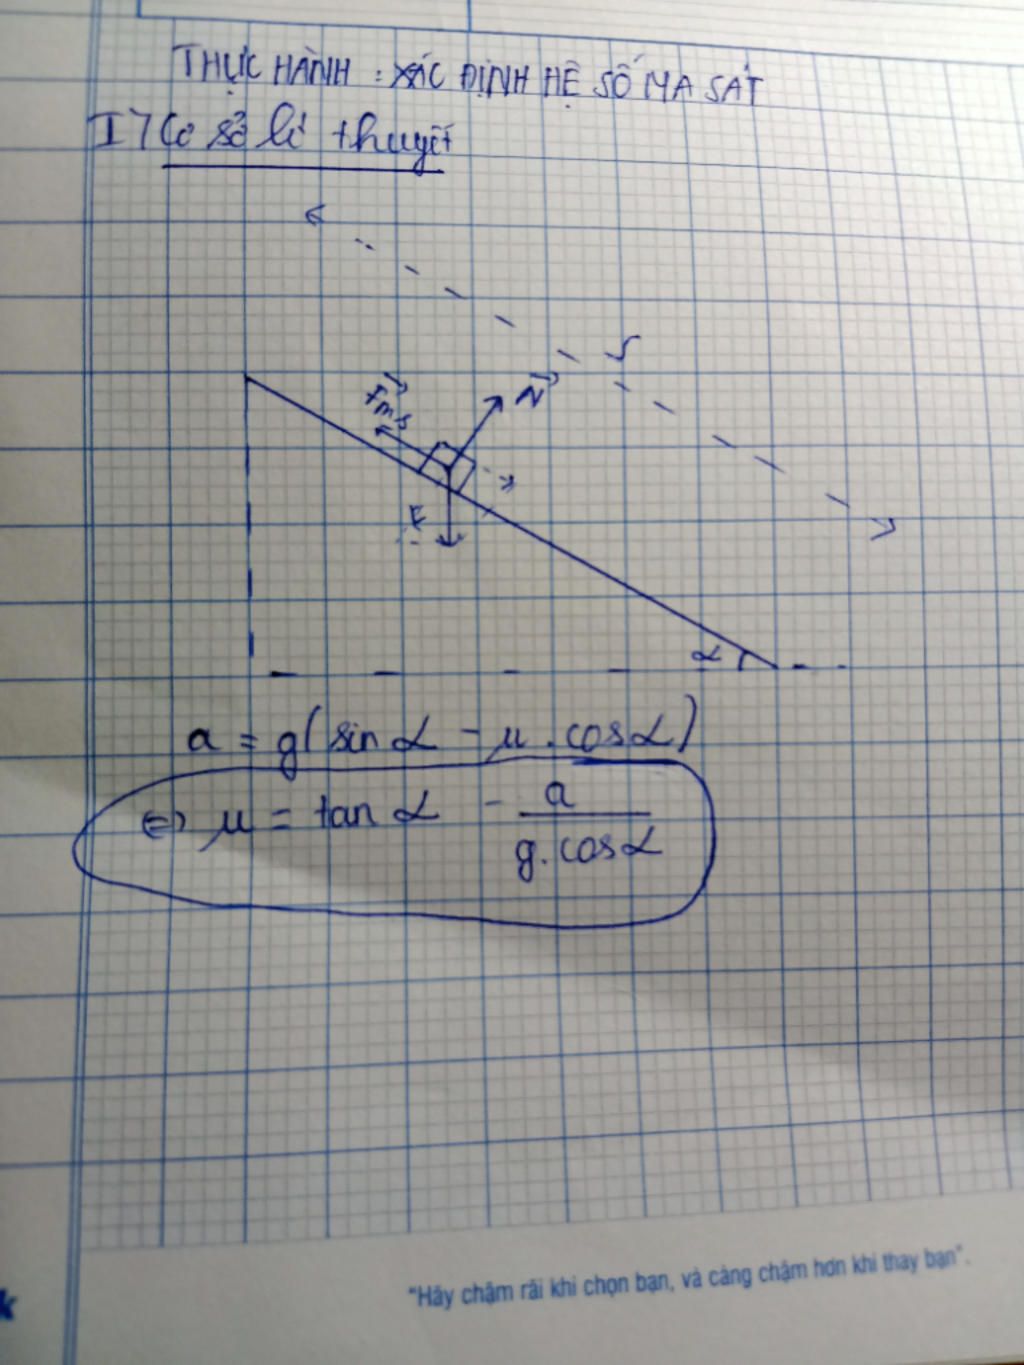 THỰC HÀNH : XÁC ĐỊNH HỆ SỐ MA SÁT
I7 Cơ sở lí thuyết
S
Fms
N
P
α
a = g(sin α - μ . cos α)
⇔ μ = tan α - a / g. cos α
k
"Hãy chậm rãi khi chọn bạn, và càng chậm hơn khi thay bạn".